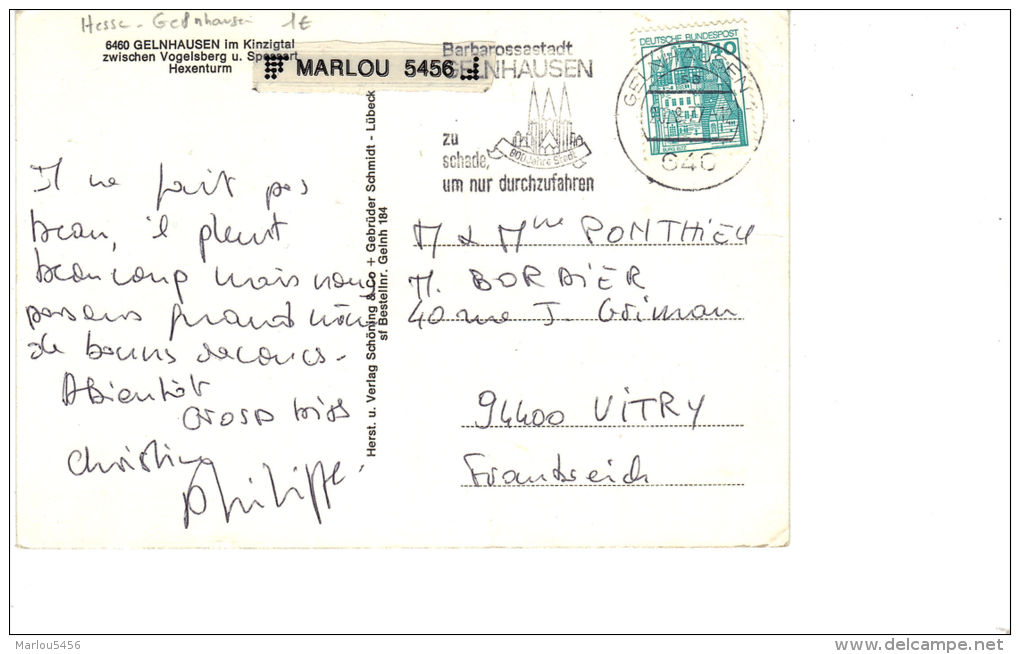 Hesse - Gelnhausen 1€
6460 GELNHAUSEN im Kinzigtal
zwischen Vogelsberg u. Spessart
Hexenturm
MARLOU 5456
Barbarossastadt
GELNHAUSEN
800 Jahre Stadt
zu
schade,
um nur durchzufahren
DEUTSCHE BUNDESPOST
40
GELNHAUSEN 1
646
Il ne fait pas
beau, il pleut
beaucoup mais nous
passons quand même
de bonnes vacances.
A bientôt
Gross bises
Christine
Philippe
Herst. u. Verlag Schöning & Co + Gebrüder Schmidt - Lübeck
sf Bestellnr. Gelnh 184
M & Mme PONTHIEU
M. BORDIER
40 rue J. Griman
94400 VITRY
Frankreich
Marlou5456
www.delcampe.net